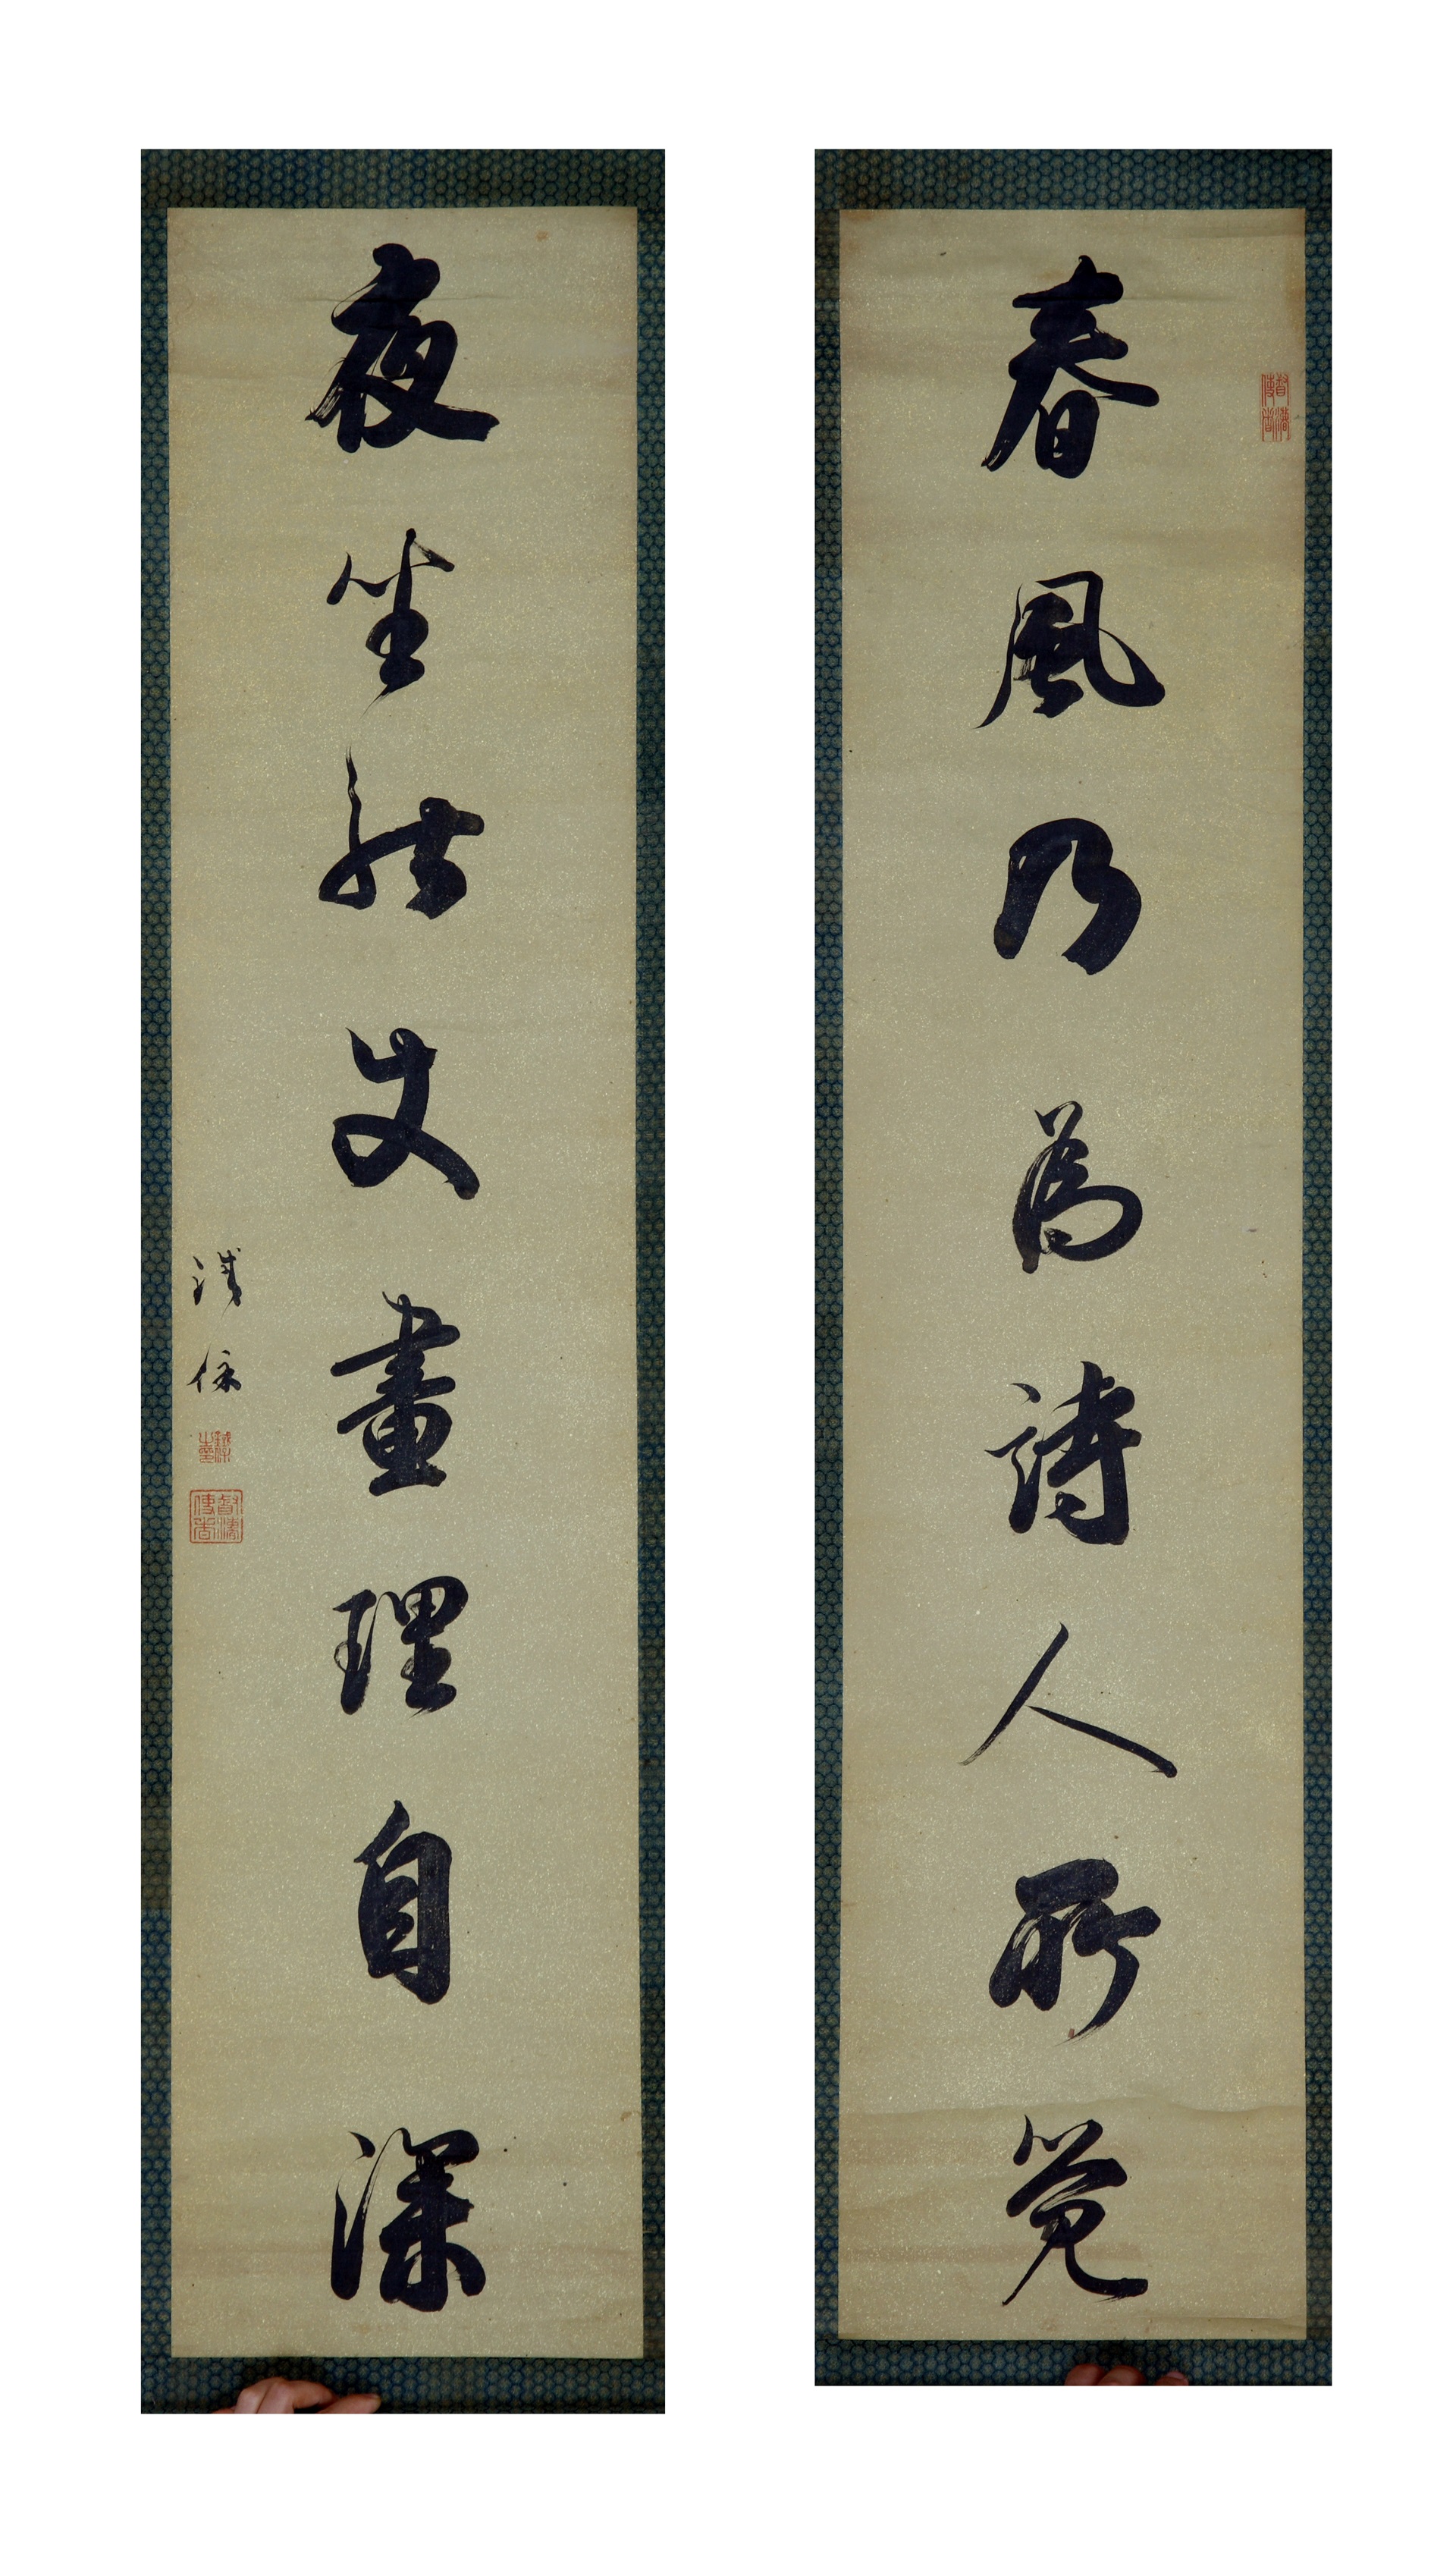 春風乃為詩人所覺
夜坐能使畫理自深
鐵保